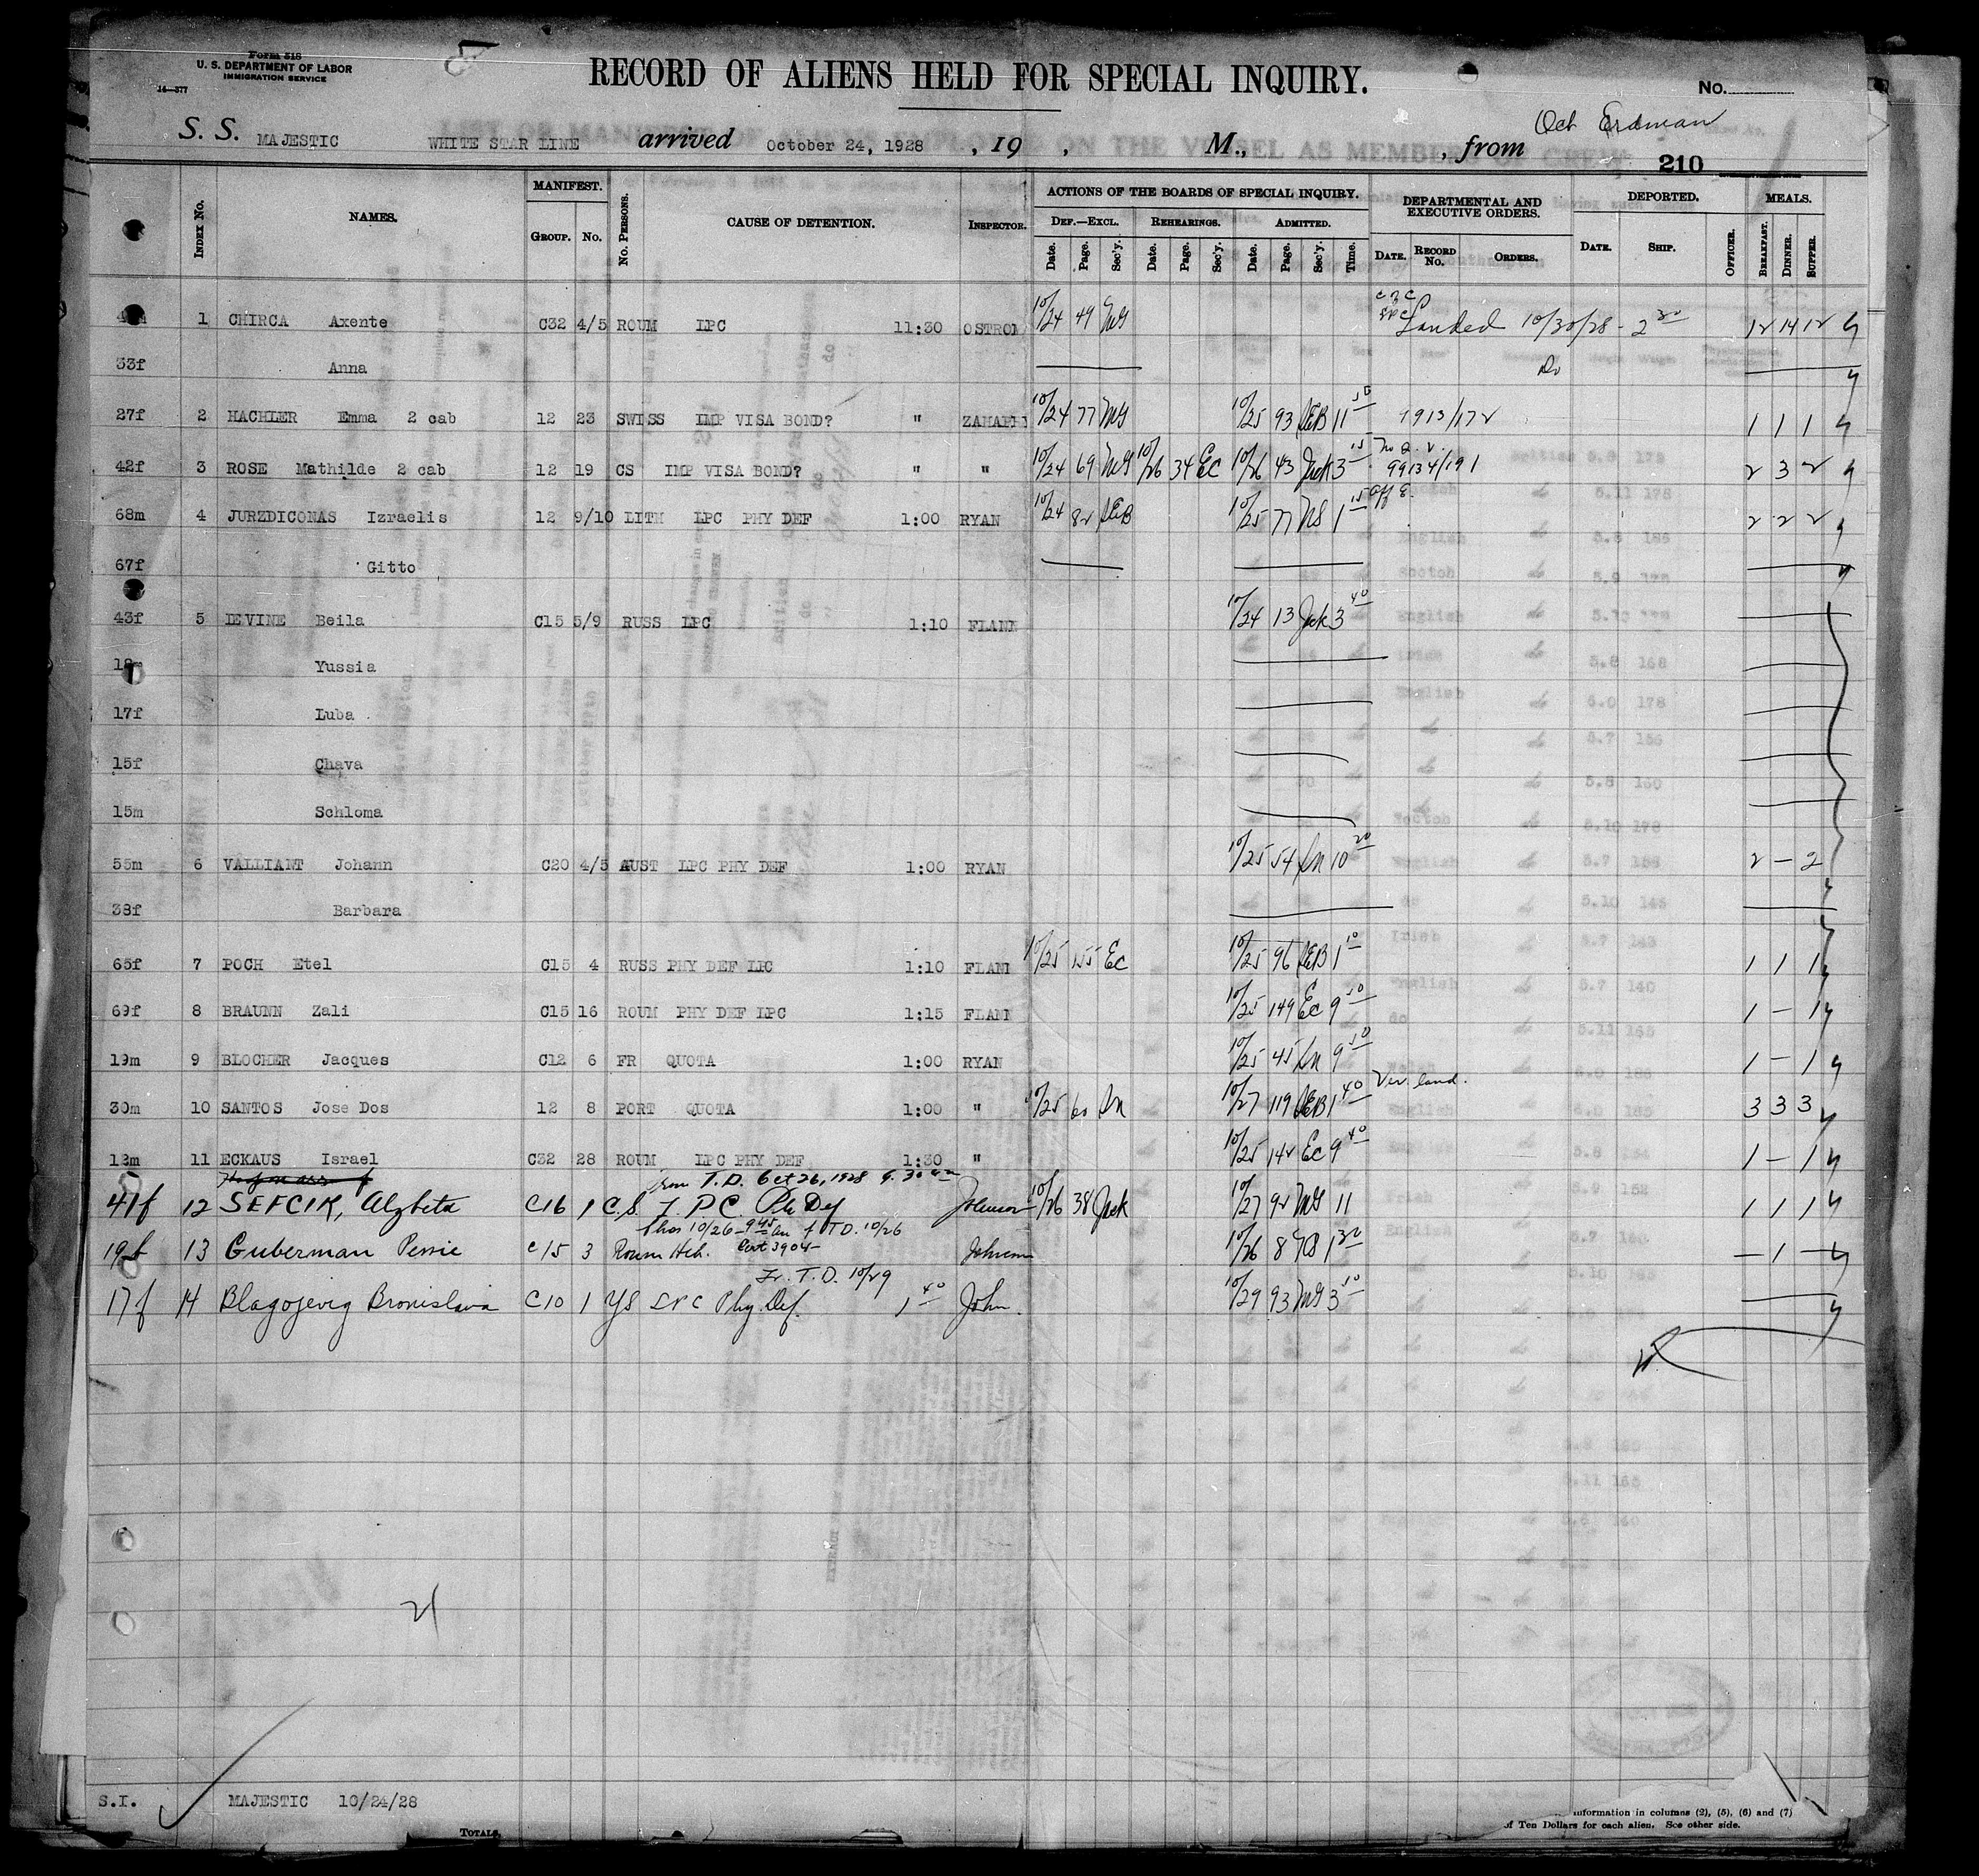 Form 518
U. S. DEPARTMENT OF LABOR
IMMIGRATION SERVICE
14—577
RECORD OF ALIENS HELD FOR SPECIAL INQUIRY.
No.
Oct Erdman
S. S. MAJESTIC WHITE STAR LINE arrived October 24, 1928 , 19 , M., , from
210
INDEX No. NAMES. MANIFEST. GROUP. No. No. PERSONS. CAUSE OF DETENTION. INSPECTOR. ACTIONS OF THE BOARDS OF SPECIAL INQUIRY. DEPARTMENTAL AND EXECUTIVE ORDERS. DEPORTED. MEALS.
DEF.—EXCL. REHEARINGS. ADMITTED.
Date. Page. Sec'y. Date. Page. Sec'y. Date. Page. Sec'y. Time. DATE. RECORD No. ORDERS. DATE. SHIP. OFFICER. BREAKFAST. DINNER. SUPPER.
1 CHIRCA Axente C32 4/5 ROUM LPC 11:30 OSTROM 10/24 49 MG Landed 10/30/28 - 2 30 12 14 12
33f Anna Do
27f 2 HACHLER Emma 2 cab 12 23 SWISS IMP VISA BOND? " ZAHARRI 10/24 77 MG 10/25 93 SEB 11 50 1 1 1
42f 3 ROSE Mathilde 2 cab 12 19 CS IMP VISA BOND? " " 10/24 69 MG 10/26 34 EC 10/26 43 Jack 3 15 99134/191 2 3 2
68m 4 JURZDICONAS Izraelis 12 9/10 LITH LPC PHY DEF 1:00 RYAN 10/24 82 SEB 10/25 77 MG 1 15 2 2 2
67f Gitto
43f 5 LEVINE Beila C15 5/9 RUSS LPC 1:10 FLANN 10/24 13 Jack 3 40
18m Yussia
17f Luba
15f Chava
15m Schloma
55m 6 VALLIANT Johann C20 4/5 AUST LPC PHY DEF 1:00 RYAN 10/25 54 SN 10 20 2 — 2
38f Barbara
65f 7 POCH Etel C15 4 RUSS PHY DEF LPC 1:10 FLANN 10/25 155 EC 10/25 96 SEB 1 10 1 1 1
69f 8 BRAUNN Zali C15 16 ROUM PHY DEF LPC 1:15 FLANN 10/25 149 EC 9 50 1 — 1
19m 9 BLOCHER Jacques C12 6 FR QUOTA 1:00 RYAN 10/25 45 SN 9 50 1 — 1
30m 10 SANTOS Jose Dos 12 8 PORT QUOTA 1:00 " 10/25 60 SN 10/27 119 SEB 1 40 3 3 3
12m 11 ECKAUS Israel C32 28 ROUM LPC PHY DEF 1:30 " 10/25 142 EC 9 40 1 — 1
from T.D. Oct 26, 1928 9.30 am
41f 12 SEFCIK, Alzbeta C16 1 C.S. L P C. Ph Def Johnson 10/26 38 Jack 10/27 92 MG 11 1 1 1
10/26 - 9 45 am f TD. 10/26
19f 13 Guberman Pessie C15 3 Roum Heb. Cert 3904 Johnson 10/26 8 1 30 — 1 —
Fr. T.D. 10/29
17f 14 Blagojevig Bronislava C10 1 YS LPC Phy. Def. 1 40 John. 10/29 93 MG 3 10
21
S.I. MAJESTIC 10/24/28
TOTALS.
information in columns (2), (5), (6) and (7)
of Ten Dollars for each alien. See other side.